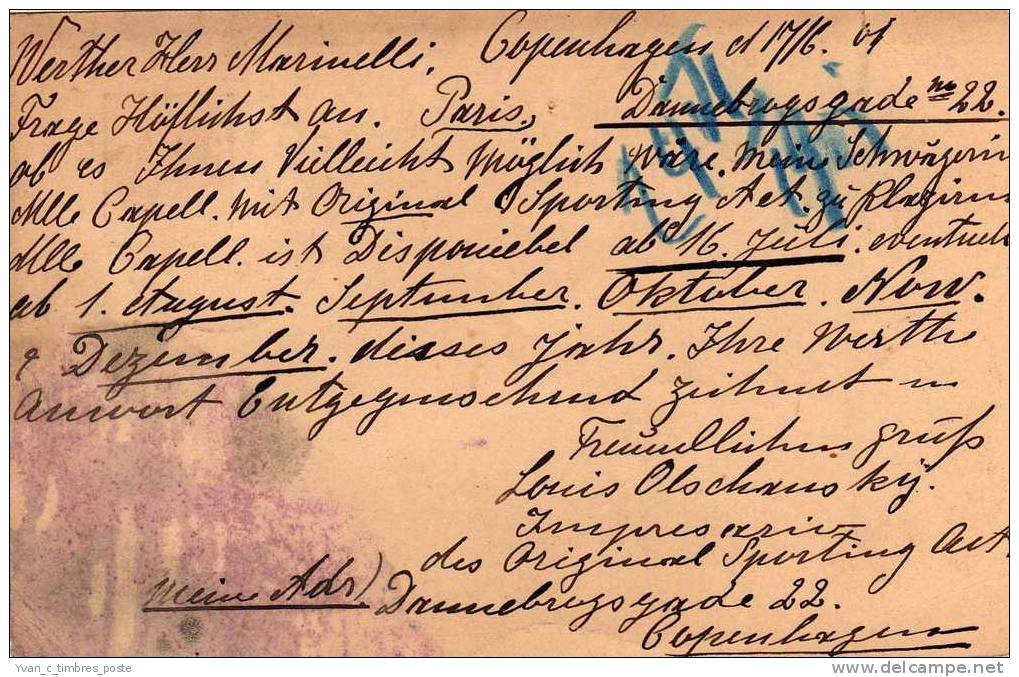 Werther Herr Marinelli, Copenhagen d 17/6. 01
Frage Höflichst an. Paris, Dannebrogsgade no 22.
ob es Ihnen Vielleicht Möglich wäre. Meine Schwägerin
Mlle Capell. Mit Original Sporting Act. zu Plazirn
Mlle Capell. ist Disponiebel ab 16. Juli. eventuell
ab 1. August. September. Oktober. Now.
& Dezember. dieses Jahr. Ihre Werthe
Antwort Entgegensehend Zeihnet in
Freundlichen gruß
Louis Olschansky.
Impresario
des Original Sporting Act
Meine Adr) Dannebrogsgade 22.
Copenhagen
Yvan_c_timbres_poste
www.delcampe.net